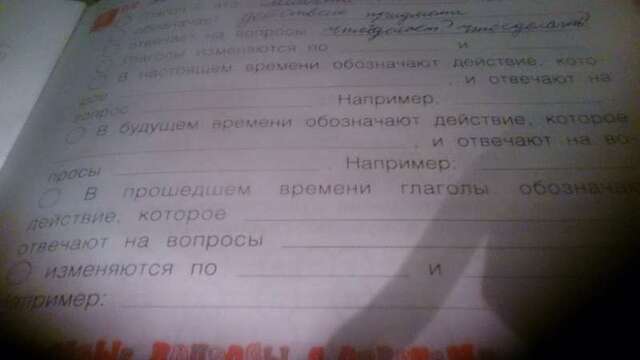 обозначает действие предмета
отвечает на вопросы что делает? что сделать?
глаголы изменяются по и
в настоящем времени обозначают действие, кото-
рое , и отвечают на
вопрос . Например:
в будущем времени обозначают действие, которое
, и отвечают на во-
просы . Например:
В прошедшем времени глаголы обозначаю
действие, которое
отвечают на вопросы
изменяются по и
Например: